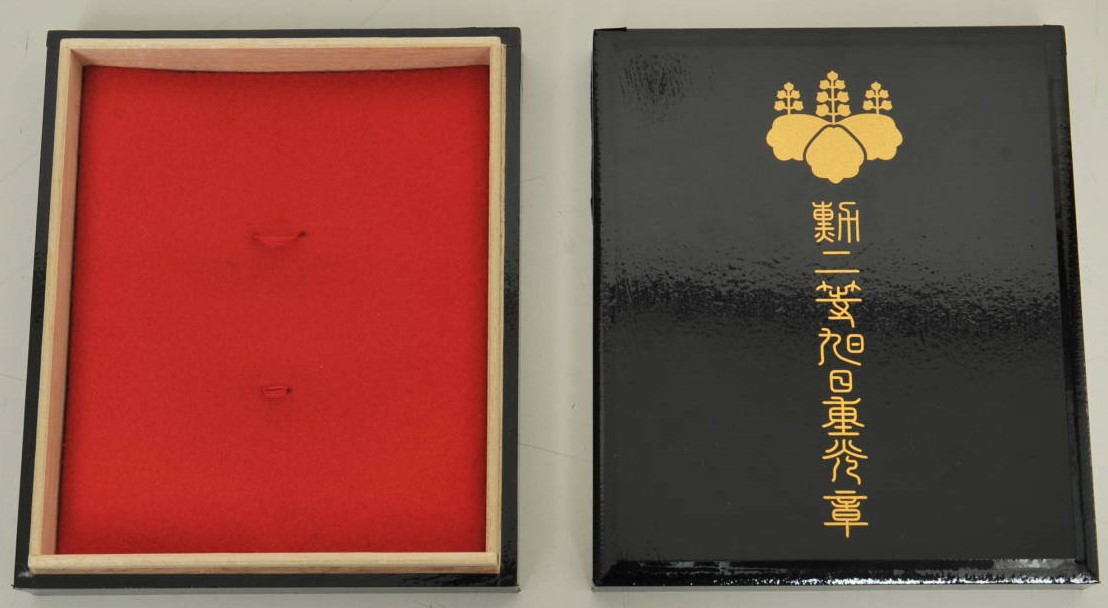 勲二等旭日重光章